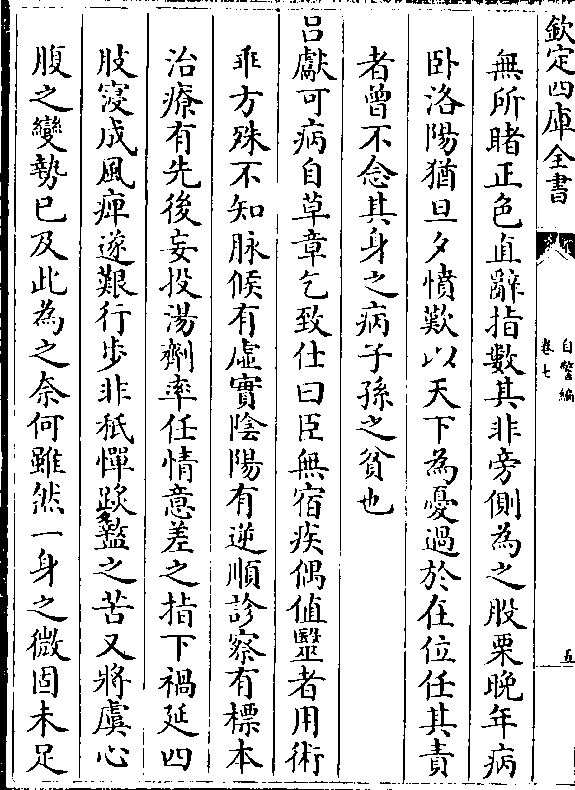 欽定四庫全書
自警編
卷七
五
無所睹正色直辭指數其非旁側為之股栗晚年病
卧洛陽猶旦夕憤歎以天下為憂過於在位任其責
者曾不念其身之病子孫之貧也
吕獻可病自草章乞致仕曰臣無宿疾偶值毉者用術
乖方殊不知脉候有虚實陰陽有逆順診察有標本
治療有先後妄投湯劑率任情意差之指下禍延四
肢寖成風痺遂艱行步非秪憚䠔盭之苦又將虞心
腹之變勢已及此為之奈何雖然一身之微固未足